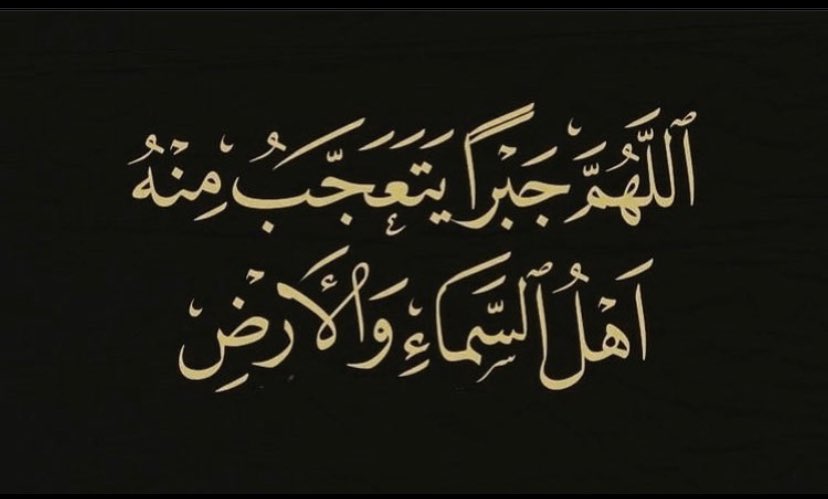 ٱللَّهُمَّ جَبْراً يَتَعَجَّبُ مِنْهُ
اَهْلُ ٱلسَّمَاءِ وَالْأَرْضِ